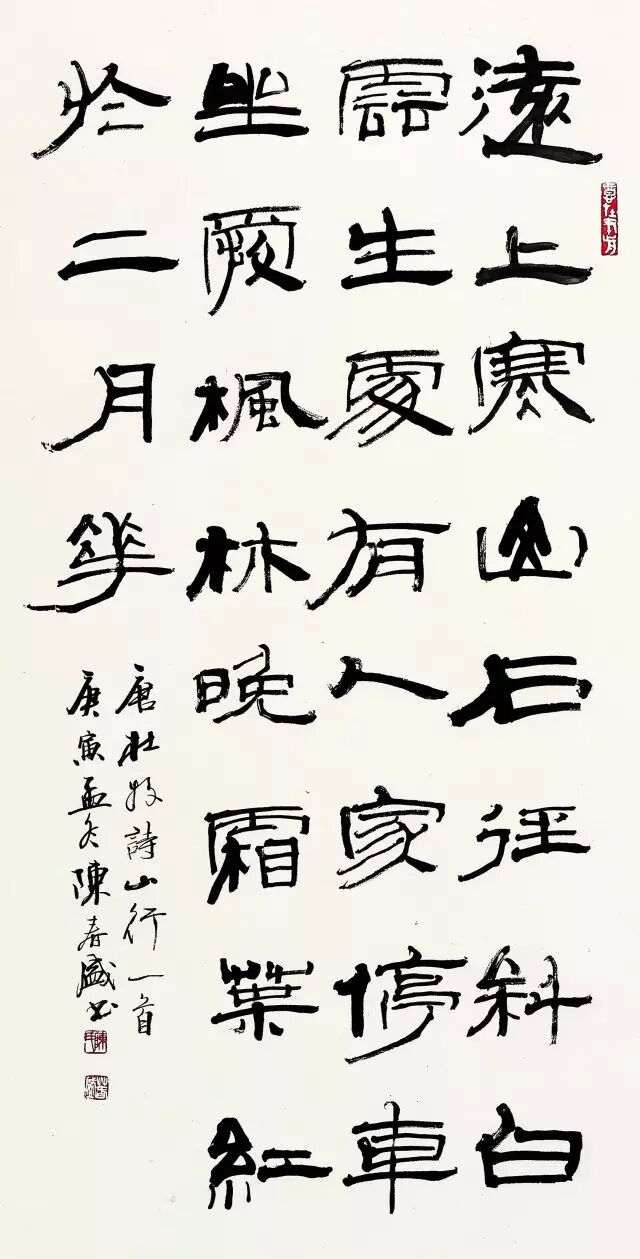 遠上寒山石徑斜白
雲生處有人家停車
坐愛楓林晚霜葉紅
於二月花
唐杜牧詩山行一首
庚寅孟冬陳春盛书